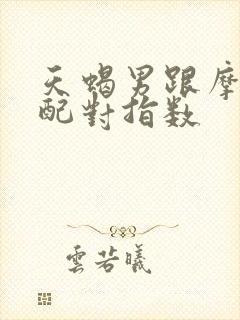 天蝎男跟摩
配對指数
雲若曦